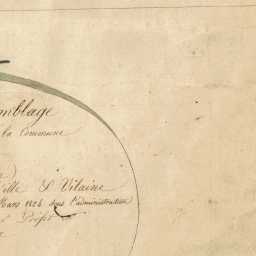 mblage
la Commune
ille St Vilaine
Mars 1826 sous l'administration
Préfet